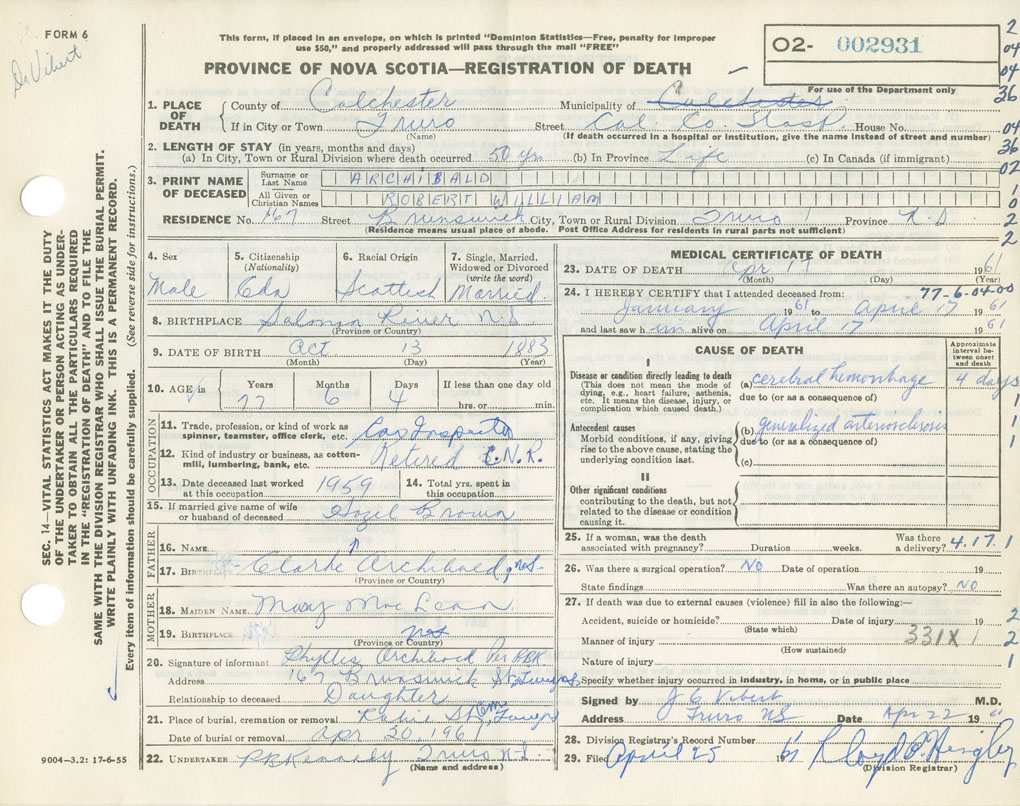 FORM 6
Dr Vibert
This form, if placed in an envelope, on which is printed "Dominion Statistics—Free, penalty for improper
use $50," and properly addressed will pass through the mail "FREE"
PROVINCE OF NOVA SCOTIA—REGISTRATION OF DEATH
02- 002931
For use of the Department only
2
04
04
36
04
36
02
1
0
2
2
1. PLACE OF DEATH County of Colchester Municipality of Colchester
If in City or Town Truro Street Col. Co. Hosp. House No.
(Name) (If death occurred in a hospital or institution, give the name instead of street and number)
2. LENGTH OF STAY (in years, months and days)
(a) In City, Town or Rural Division where death occurred 50 yrs (b) In Province Life (c) In Canada (if immigrant)
3. PRINT NAME OF DECEASED Surname or Last Name ARCHIBALD
All Given or Christian Names ROBERT WILLIAM
RESIDENCE No. 167 Street Brunswick City, Town or Rural Division Truro Province N.S
(Residence means usual place of abode. Post Office Address for residents in rural parts not sufficient)
4. Sex Male
5. Citizenship (Nationality) Cdn
6. Racial Origin Scottish
7. Single, Married, Widowed or Divorced (write the word) Married
8. BIRTHPLACE Salmon River N.S
(Province or Country)
9. DATE OF BIRTH Oct 13 1883
(Month) (Day) (Year)
10. AGE in Years 77 Months 6 Days 4 If less than one day old hrs. or min.
OCCUPATION
11. Trade, profession, or kind of work as spinner, teamster, office clerk, etc. Car Inspector
12. Kind of industry or business, as cotton-mill, lumbering, bank, etc. Retired C.N.R.
13. Date deceased last worked at this occupation 1959 14. Total yrs. spent in this occupation
15. If married give name of wife or husband of deceased Hazel Brown
FATHER
16. NAME
17. BIRTHPLACE Clarke Archibald
(Province or Country)
MOTHER
18. MAIDEN NAME Mary MacLean
19. BIRTHPLACE
(Province or Country)
20. Signature of informant Phyllis Archibald Per PBK
Address 167 Brunswick St, Truro
Relationship to deceased Daughter
21. Place of burial, cremation or removal Robie St Cem Truro
Date of burial or removal Apr 20, 1961
22. UNDERTAKER P.B. Kennedy Truro N.S.
(Name and address)
MEDICAL CERTIFICATE OF DEATH
23. DATE OF DEATH Apr 17 1961
(Month) (Day) (Year)
24. I HEREBY CERTIFY that I attended deceased from: 77-6-04-00
January 1961 to April 17 1961
and last saw him alive on April 17 1961
CAUSE OF DEATH
Approximate interval between onset and death
I
Disease or condition directly leading to death
(This does not mean the mode of dying, e.g., heart failure, asthenia, etc. It means the disease, injury, or complication which caused death.)
(a) cerebral hemorrhage 4 days
due to (or as a consequence of)
Antecedent causes
Morbid conditions, if any, giving rise to the above cause, stating the underlying condition last.
(b) generalized arteriosclerosis
due to (or as a consequence of)
(c)
II
Other significant conditions
contributing to the death, but not related to the disease or condition causing it.
1
1
1
25. If a woman, was the death associated with pregnancy? Duration weeks. Was there a delivery? 4.17.1
26. Was there a surgical operation? NO Date of operation 19
State findings Was there an autopsy? NO
27. If death was due to external causes (violence) fill in also the following:—
Accident, suicide or homicide? Date of injury 19 2
(State which)
Manner of injury 331X 1 2
(How sustained)
Nature of injury 1
Specify whether injury occurred in industry, in home, or in public place
Signed by J E Vibert M.D.
Address Truro NS Date Apr 22 19
28. Division Registrar's Record Number
29. Filed April 25 1961
(Division Registrar)
SEC. 14—VITAL STATISTICS ACT MAKES IT THE DUTY
OF THE UNDERTAKER OR PERSON ACTING AS UNDER-
TAKER TO OBTAIN ALL THE PARTICULARS REQUIRED
IN THE "REGISTRATION OF DEATH" AND TO FILE THE
SAME WITH THE DIVISION REGISTRAR WHO SHALL ISSUE THE BURIAL PERMIT.
WRITE PLAINLY WITH UNFADING INK. THIS IS A PERMANENT RECORD.
Every item of information should be carefully supplied. (See reverse side for instructions.)
9004—3.2: 17-6-55